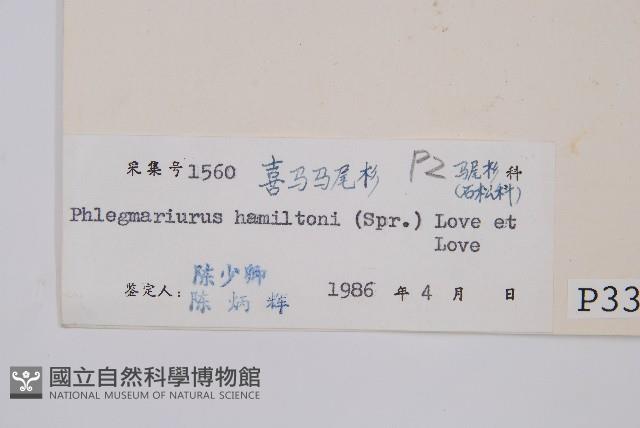 采集号 1560 喜马马尾杉 P2 马尾杉 科
(石松科)
Phlegmariurus hamiltoni (Spr.) Love et
Love
鉴定人: 陈少卿
陈炳辉
1986 年 4 月 日
P33
國立自然科學博物館
NATIONAL MUSEUM OF NATURAL SCIENCE